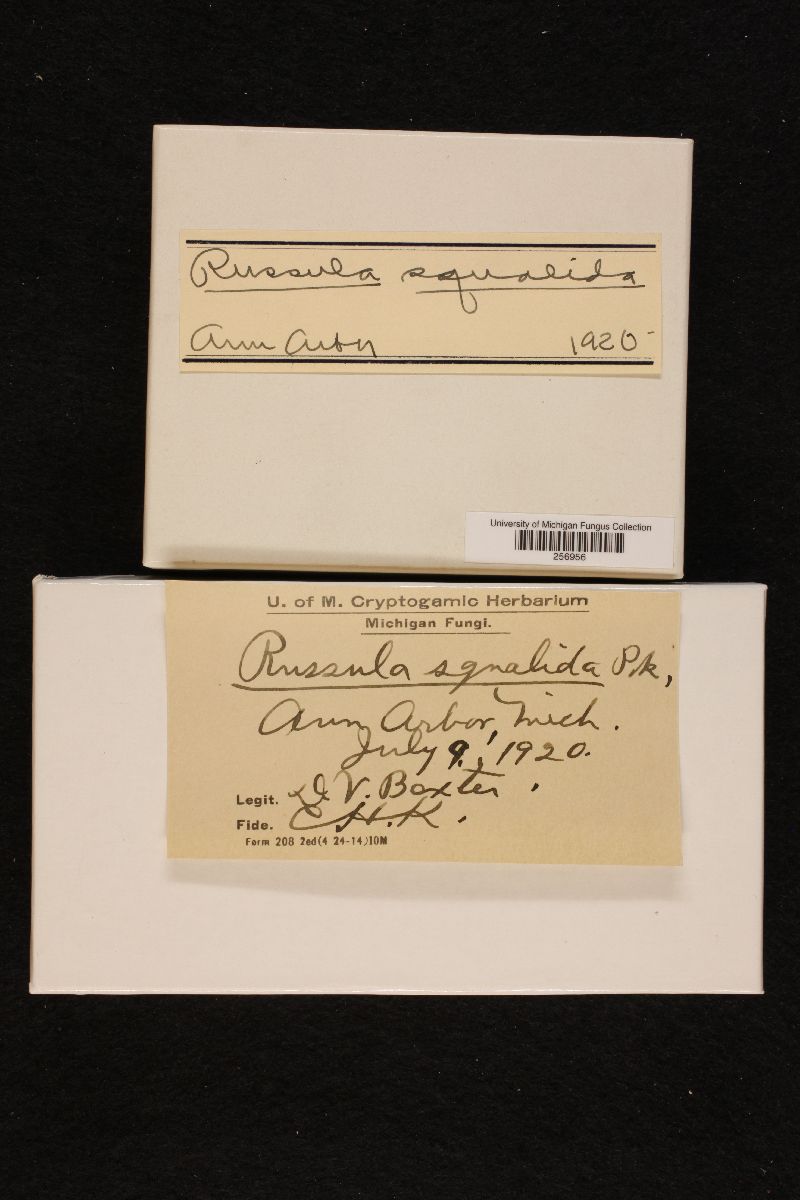 Russula squalida
Ann Arbor 1920
University of Michigan Fungus Collection
256956
U. of M. Cryptogamic Herbarium
Michigan Fungi.
Russula squalida Pk,
Ann Arbor, Mich.
July 9, 1920.
Legit. D. V. Baxter.
Fide. C H. K.
Form 208 2ed(4 24-14)10M